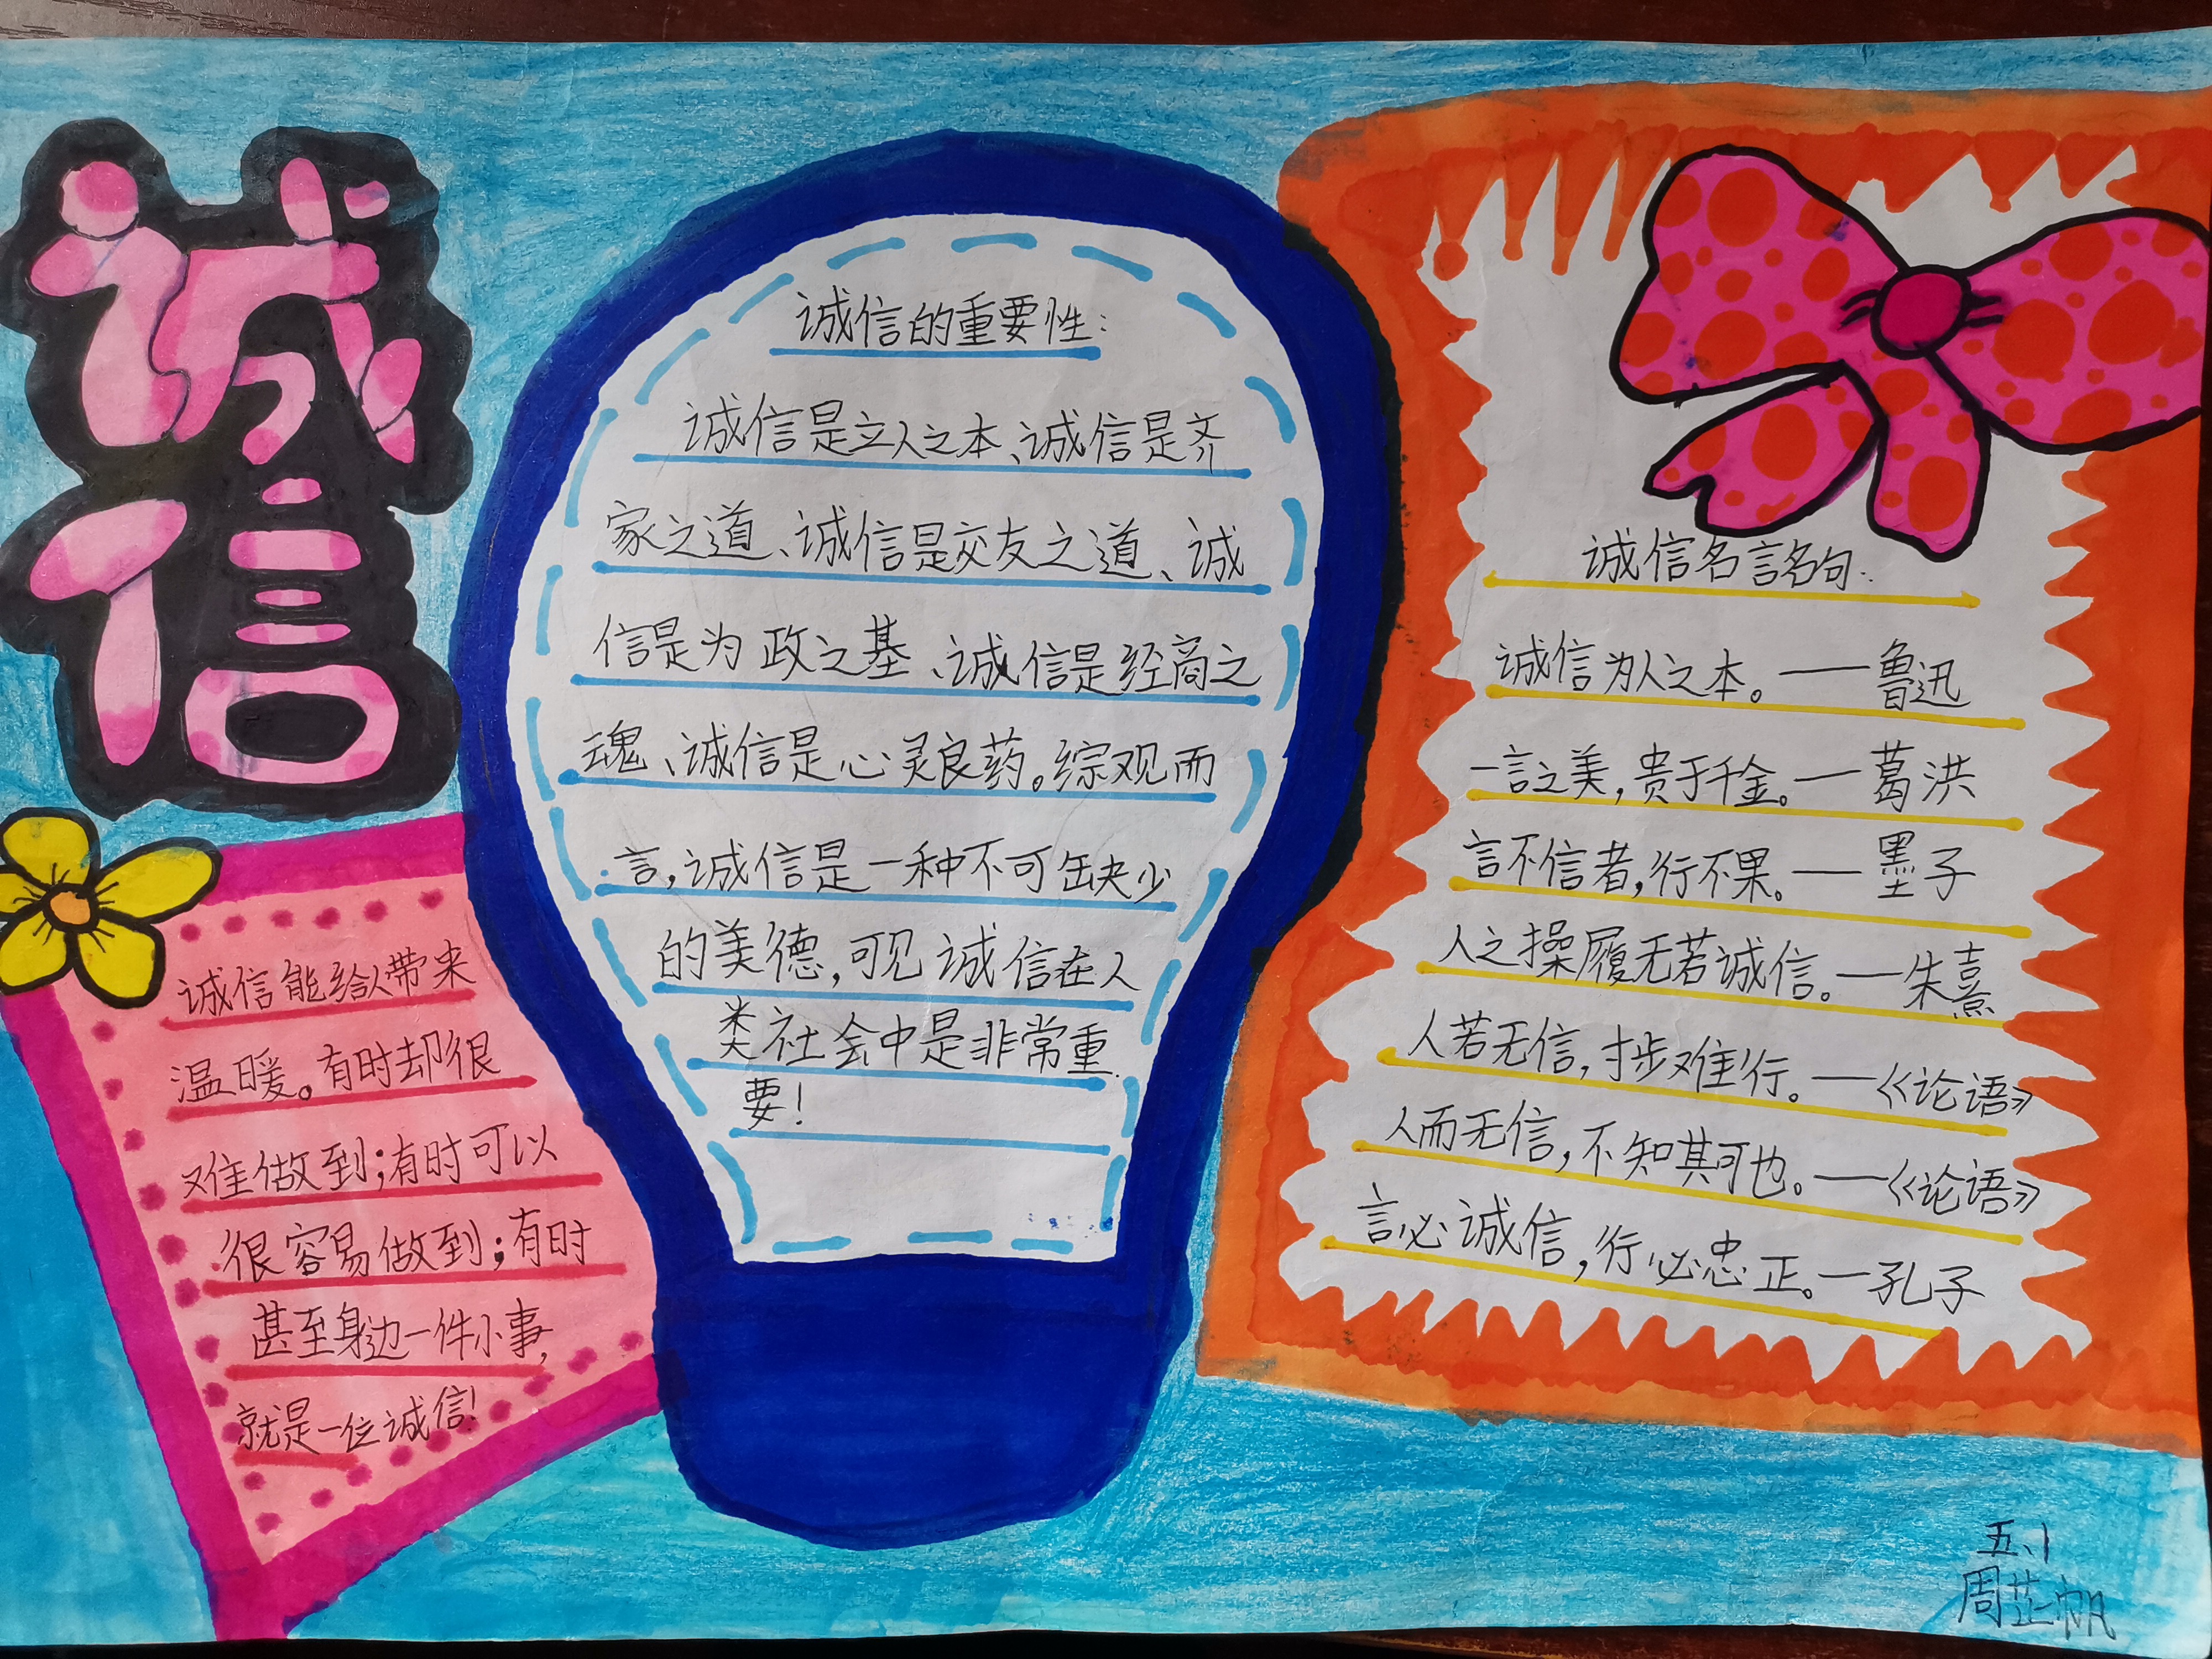 诚信
诚信的重要性:
诚信是立人之本、诚信是齐
家之道、诚信是交友之道、诚
信是为政之基、诚信是经商之
魂、诚信是心灵良药。综观而
言,诚信是一种不可缺少
的美德,可见诚信在人
类社会中是非常重
要!
诚信能给人带来
温暖。有时却很
难做到;有时可以
很容易做到;有时
甚至身边一件小事,
就是一位诚信!
诚信名言名句:
诚信为人之本。——鲁迅
一言之美,贵于千金。—葛洪
言不信者,行不果。—墨子
人之操履无若诚信。—朱熹
人若无信,寸步难行。—《论语》
人而无信,不知其可也。—《论语》
言必诚信,行必忠正。—孔子
五、1
周芷帆